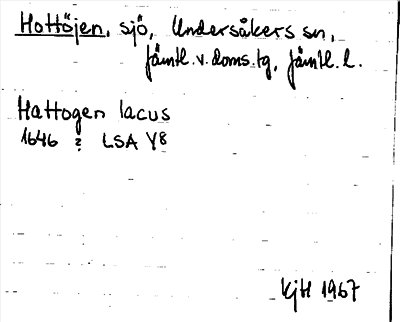 Hottöjen, sjö, Undersåkers sn,
Jämtl. v. doms.tg, Jämtl. l.
Hattogen lacus
1646 ? LSA Y8
KjH 1967